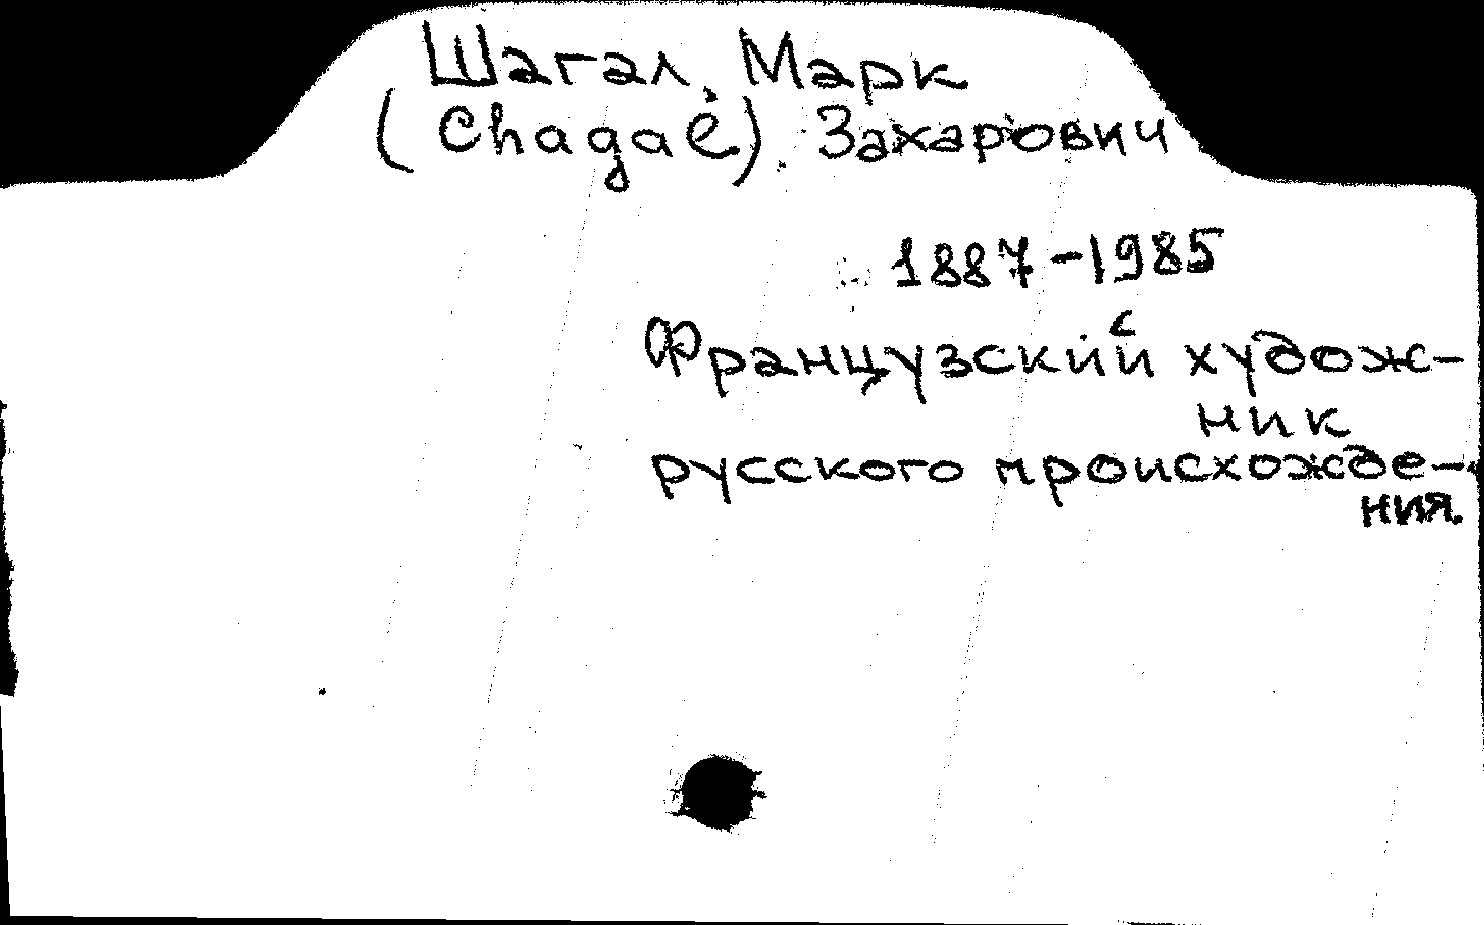 Шагал, Марк
(Chagal). Захарович
1887-1985
Французский худож-
ник
русского происхожде-
ния.